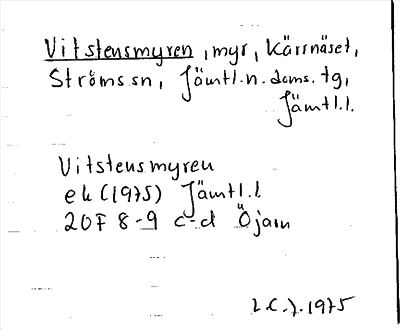 Vitstensmyren, myr, Kärrnäset,
Ströms sn, Jämtl.n.doms.tg,
Jämtl.l.
Vitstensmyren
ek (1975) Jämtl.l
20F 8-9 c-d Öjarn
L.C.J. 1975